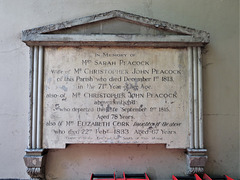 In Memory of
Mrs Sarah Peacock
wife of Mr Christopher John Peacock
of this Parish who died December 1st 1813,
in the 71st Year of her Age.
also of Mr Christopher John Peacock
above
who departed this September 9th 1815,
Aged 78 Years.
also of Mrs Elizabeth Cork of the above
who died 22nd Feby 1893 Aged 67 Years